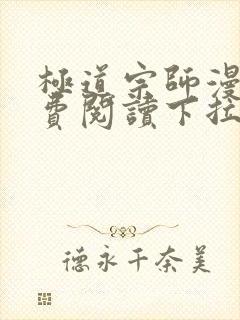 極道宗師漫
費閱讀下拉
德永千奈美